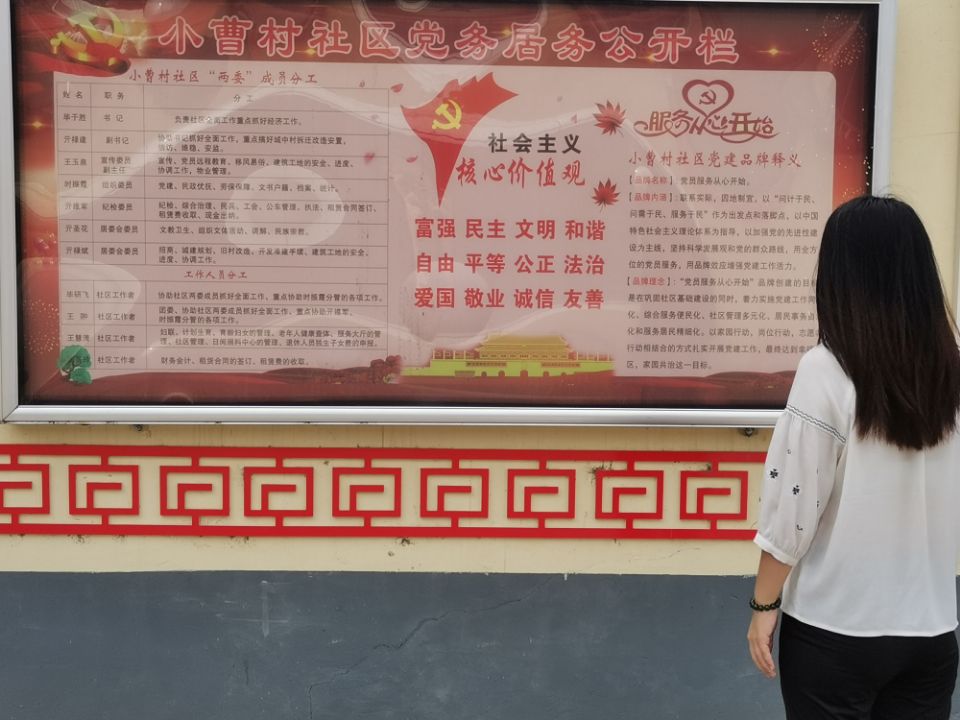 小曹村社区党务居务公开栏
小曹村社区“两委”成员分工
姓名 职务 分工
毕于胜 书记 负责社区全面工作重点抓好经济工作。
亓禄建 副书记 协助书记抓好全面工作，重点搞好城中村拆迁改造安置、
信访、维稳、安监。
王玉燕 宣传委员 宣传、党员远程教育、移风易俗，建筑工地的安全、进度、
副主任 协调工作，物业管理。
时振霞 组织委员 党建、民政优抚、劳保保障、文书户籍、档案、统计。
亓胜军 纪检委员 纪检、综合治理、民兵、工会、公车管理、执法、租赁合同签订、
租赁费收取、现金出纳。
亓圣花 居委会委员 文教卫生、组织文体活动、调解、民族宗教。
亓禄斌 居委会委员 招商、城建规划、旧村改造、开发准建手续、建筑工地的安全、
进度、协调工作。
工作人员分工
毕研飞 社区工作者 协助社区两委成员抓好全面工作、重点协助时振霞分管的各项工作。
王 社区工作者 团委、协助社区两委成员抓好全面工作、重点协助亓胜军、
时振霞分管的各项工作。
王慧茂 社区工作者 妇联、计划生育、育龄妇女的管理、老年人健康查体、服务大厅的管
理、社区管理、日间照料中心的管理、退休人员独生子女费的申报。
社区工作者 财务会计、租赁合同的签订、租赁费的收取。
社会主义
核心价值观
富强 民主 文明 和谐
自由 平等 公正 法治
爱国 敬业 诚信 友善
服务从心开始
小曹村社区党建品牌释义
【品牌名称】：党员服务从心开始。
【品牌内涵】：联系实际，因地制宜，以“问计于民、
问需于民、服务于民”作为出发点和落脚点，以中国
特色社会主义理论体系为指导，以加强党的先进性建设
为主线，坚持科学发展观和党的群众路线，用全方
位的党员服务，用品牌效应增强党建工作活力。
【品牌理念】：“党员服务从心开始”品牌创建的目标
是在巩固社区基础建设的同时，着力实施党建工作网
化、综合服务便民化、社区管理多元化、居民事务自
化和服务居民精细化，以家园行动，岗位行动，志愿
行动相结合的方式扎实开展党建工作，最终达到幸
区，家园共治这一目标。